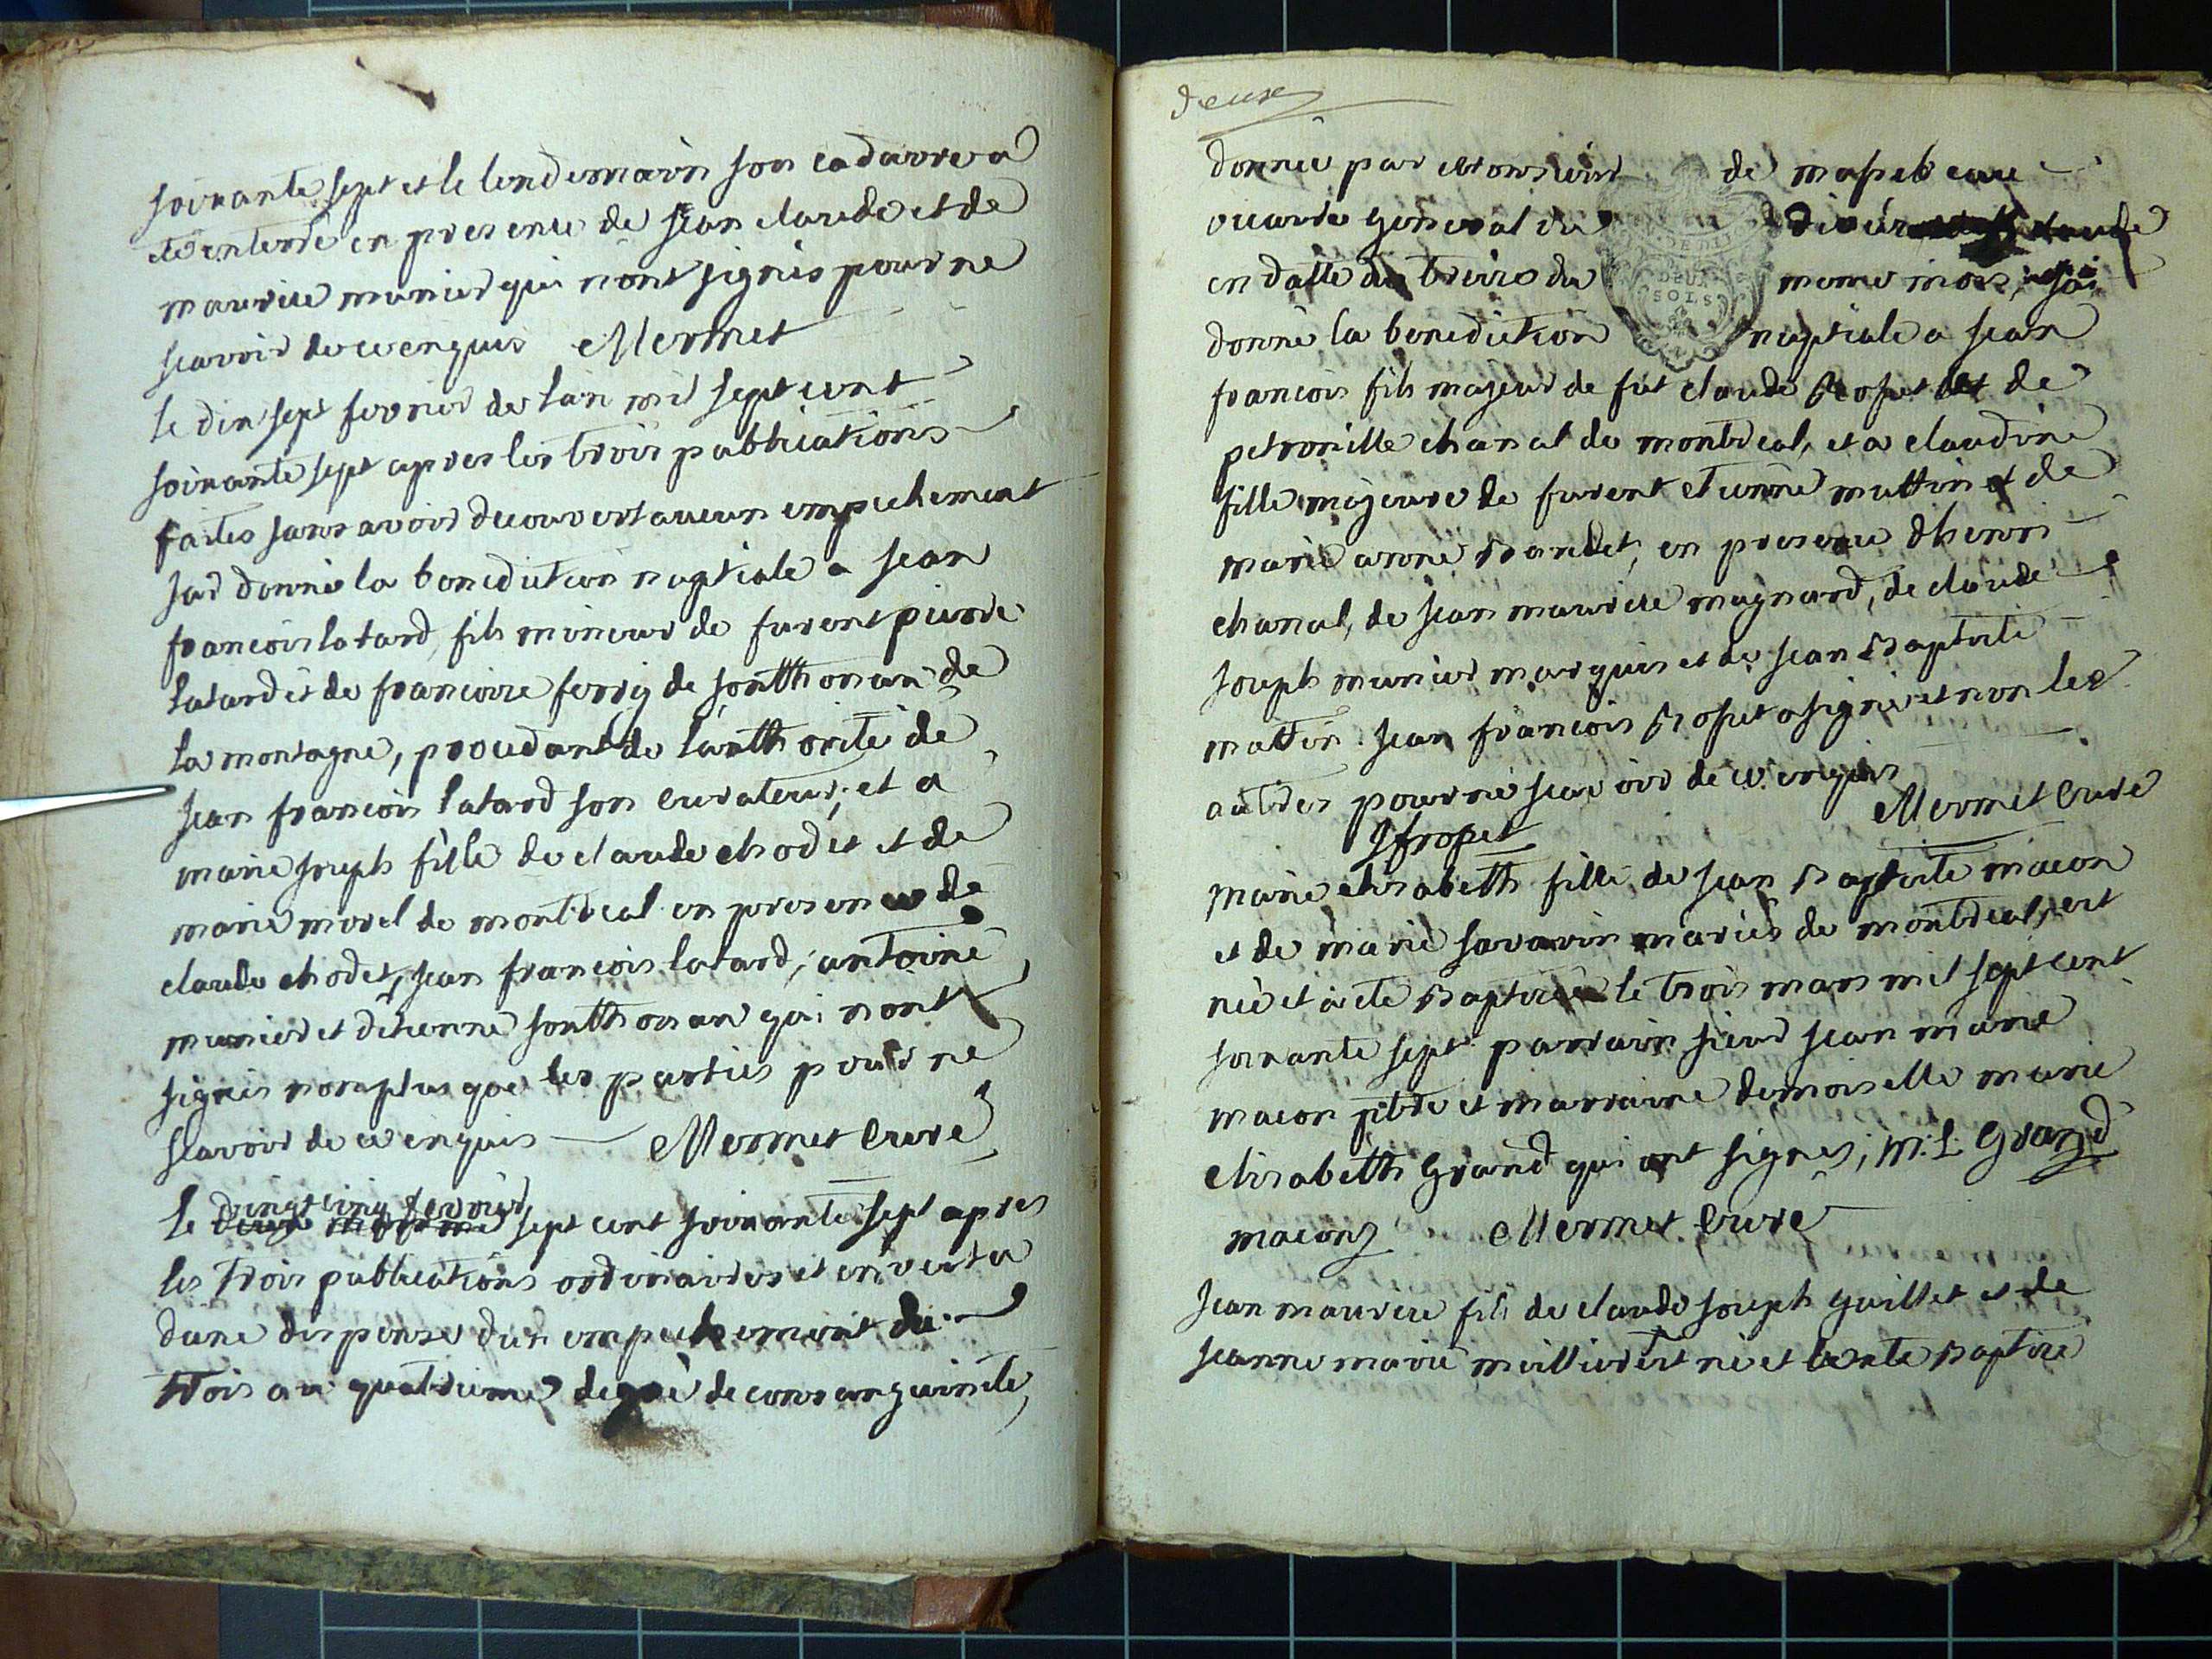 soixante sept et le lendemain son cadavre a
été enterré en presence de jean claude et de
maurice munier qui n'ont signés pour ne
scavoir de ce enquis Mermet
le dix sept fevrier de l'an mil sept cent
soixante sept apres les trois publications
faites sans avoir decouvert aucun empechement
jai donné la benediction nuptiale a jean
francois latard, fils mineur de furent pierre
latard et de francoise ferry de sontthonan de
la montagne, procedant de l'autthorité de
jean francois latard son curateur; et a
marie joseph fille de claude chodet et de
marie morel de montreal en presence de
claude chodet, jean francois latard, antoine
munier et d'etienne sontthonan qui n'ont
signés nonplus que les parties pour ne
scavoir de ce enquis Mermet curé
le vingt cinq fevrier sept cent soixante sept apres
les trois publications ordinaires et en vertu
d'une dispense d'un empechement du
trois au quatrieme degré de consanguinité,
deux
donnée par Monsieur de
vicaire general du
en datte du treize du meme mois, jai
donné la benediction nuptiale a jean
francois fils majeur de fut claude Ropet et de
petronille chanal de montreal, et a claudine
fille majeure de furent etienne mattin et de
marie anne Baudet, en presence d'henri
chanal, de jean maurice magnard, de claude
joseph munier marquis et de jean Baptiste
mattin. jean francois Ropet a signé et non les
autres pour ne scavoir de ce enquis
Jfropet Mermet curé
marie elisabeth fille de jean Baptiste macon
et de marie savarin mariés de montreal, est
née et a été Baptisée le trois mars mil sept cent
soixante sept parrain sieur jean marie
macon pbtre et marraine demoiselle marie
elisabeth Grand qui ont signés; M: E Grand
macon Mermet curé
jean maurice fils de claude joseph guillet et de
jeanne marie millier est né et a été Baptisé